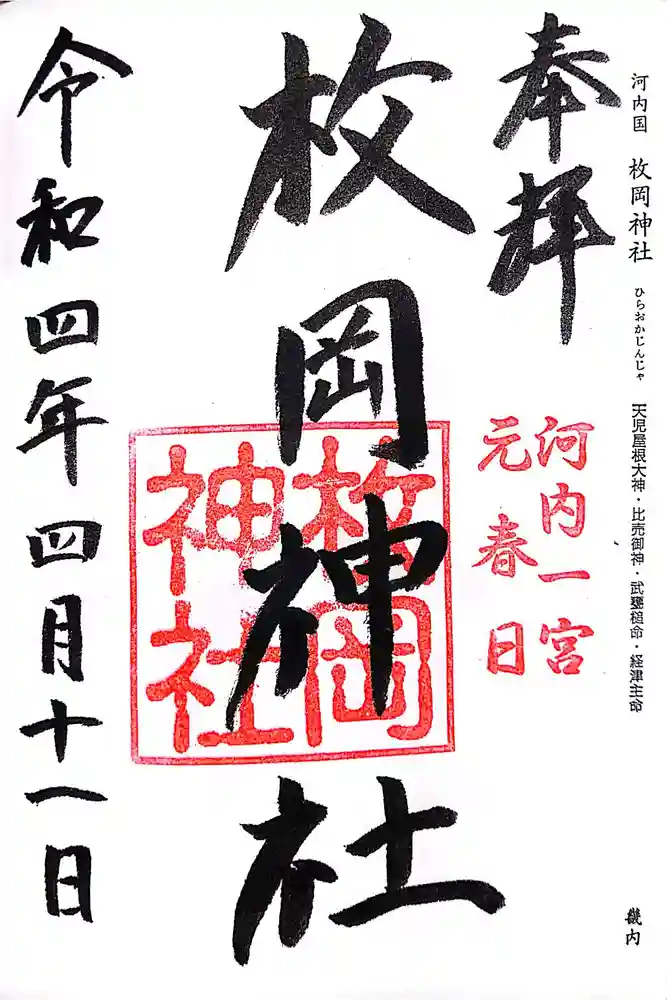 河内国 枚岡神社 ひらおかじんじゃ 天児屋根大神・比売御神・武甕槌命・経津主命
畿内
奉拝
河内一宮
元春日
枚岡神社
枚岡
神社
令和四年四月十一日